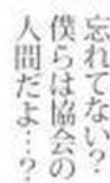 忘れてない？
僕らは協会の
人間だよ…？